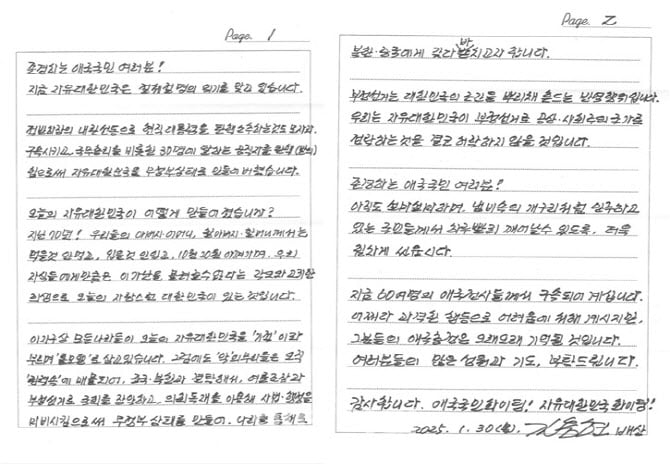 Page. 1
존경하는 애국국민 여러분!
지금 자유대한민국은 절체절명의 위기를 맞고 있습니다.
현직 대통령을 탄핵소추하는것도 모자라,
구속시키고, 국무총리를 비롯한 30명에 달하는 공직자를 탄핵
함으로써 자유대한민국을 무정부상태로 만들어버렸습니다.
오늘의 자유대한민국이 어떻게 만들어졌습니까?
지난 70년! 우리들의 아버지·어머니, 할아버지·할머니께서는
먹을것 안먹고, 입을것 안입고,
자식들에게만큼은 이 가난을 물려줄수없다는 각오와
희생으로 오늘의 자랑스런 대한민국이 있는 것입니다.
이지구상 모든나라들이 오늘의 자유대한민국을 '기적'이라
부르며 '롤모델'로 삼고있습니다. 그럼에도 악의무리들은 오직
매몰되어, 중국·북한과 결탁해서, 여론조작과
부정선거로 국회를 장악하고, 의회독재를 이용해 사법·행정을
마비시킴으로써 무정부상태를 만들어, 나라를 통째로
Page. 2
북한·중국에게 갖다 바치고자 합니다.
부정선거는 대한민국의 근간을 뿌리째 흔드는 반역행위입니다.
우리는 자유대한민국이 부정선거로 공산·사회주의 국가로
전락하는것을 결코 허락하지 않을 것입니다.
존경하는 애국국민 여러분!
아직도 설마설마하며, 냄비속의 개구리처럼 안주하고
있는 국민들께서 하루빨리 깨어날수 있도록, 더욱
힘차게 싸웁시다.
지금 60여명의 애국전사들께서 구속되어 계십니다.
어쩌다 과격한 행동으로 어려움에 처해 계시지만,
그분들의 애국충정은 오래오래 기억될 것입니다.
여러분들의 많은 성원과 기도, 부탁드립니다.
감사합니다. 애국국민화이팅! 자유대한민국화이팅!
2025. 1. 30(목). 김용현 배상